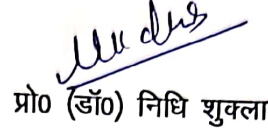 प्रो० (डॉ०) निधि शुक्ला